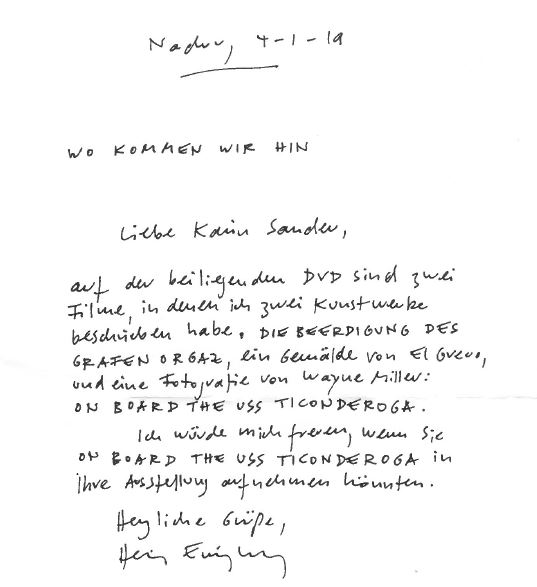 4-1-19
WO KOMMEN WIR HIN
Liebe Karin Sander,
auf der beiliegenden DVD sind zwei
Filme, in denen ich zwei Kunstwerke
beschrieben habe. DIE BEERDIGUNG DES
GRAFEN ORGAZ, ein Gemälde von El Greco,
und eine Fotografie von Wayne Miller:
ON BOARD THE USS TICONDEROGA.
Ich würde mich freuen, wenn Sie
ON BOARD THE USS TICONDEROGA in
Ihre Ausstellung aufnehmen könnten.
Herzliche Grüße,